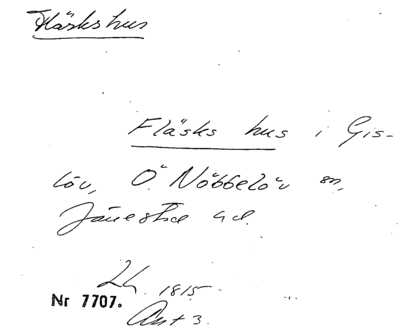 Fläskshus
Fläsks hus i Gis-
löv, Ö. Nöbbelöv sn,
Järrestad hd.
Lh. 1815
Nr 7707.
Ant 3.